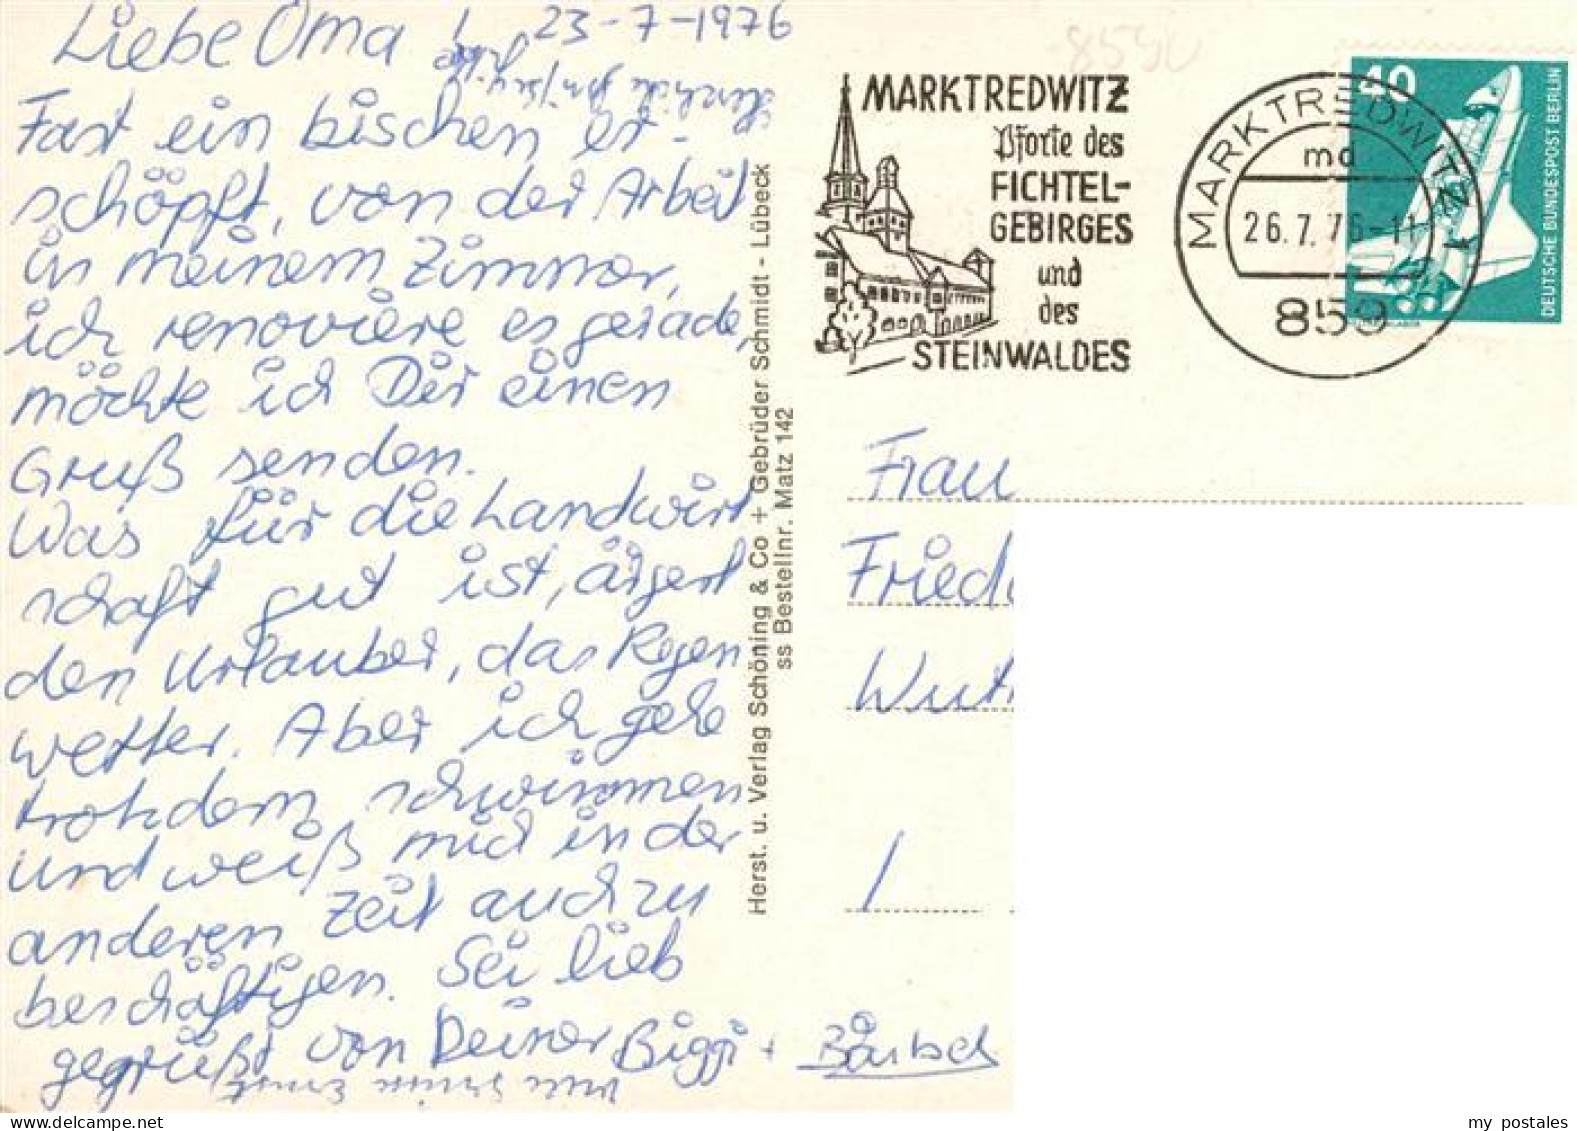 Liebe Oma ! 23-7-1976
Fast ein bischen er-
schöpft, von der Arbeit
in meinem Zimmer,
ich renoviere es gerade,
möchte ich Dir einen
Gruß senden.
Was für die Landwirt
schaft gut ist, ärgert
den Urlauber, das Regen
wetter. Aber ich gehe
trotzdem schwimmen
und weiß mich in der
anderen Zeit auch zu
beschäftigen. Sei lieb
gegrüßt von Deiner Biggi + Bärbel
Herst. u. Verlag Schöning & Co + Gebrüder Schmidt - Lübeck
ss Bestellnr. Matz 142
8590
MARKTREDWITZ
Pforte des
FICHTEL-
GEBIRGES
und
des
STEINWALDES
MARKTREDWITZ 1
md
26.7.76-11
859
40
DEUTSCHE BUNDESPOST BERLIN
Frau
Fried
Wut
my postales